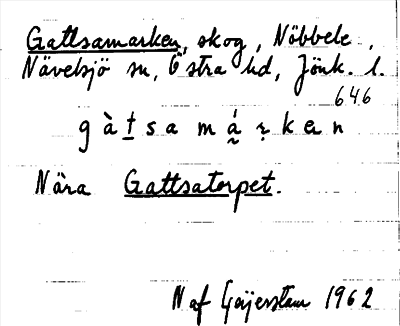 Gattsamarken, skog, Nöbbele,
Nävelsjö sn, Östra hd, Jönk. l.
646
gàt̲sa má̰ṛken
Nära Gattsatorpet.
N af Geijerstam 1962